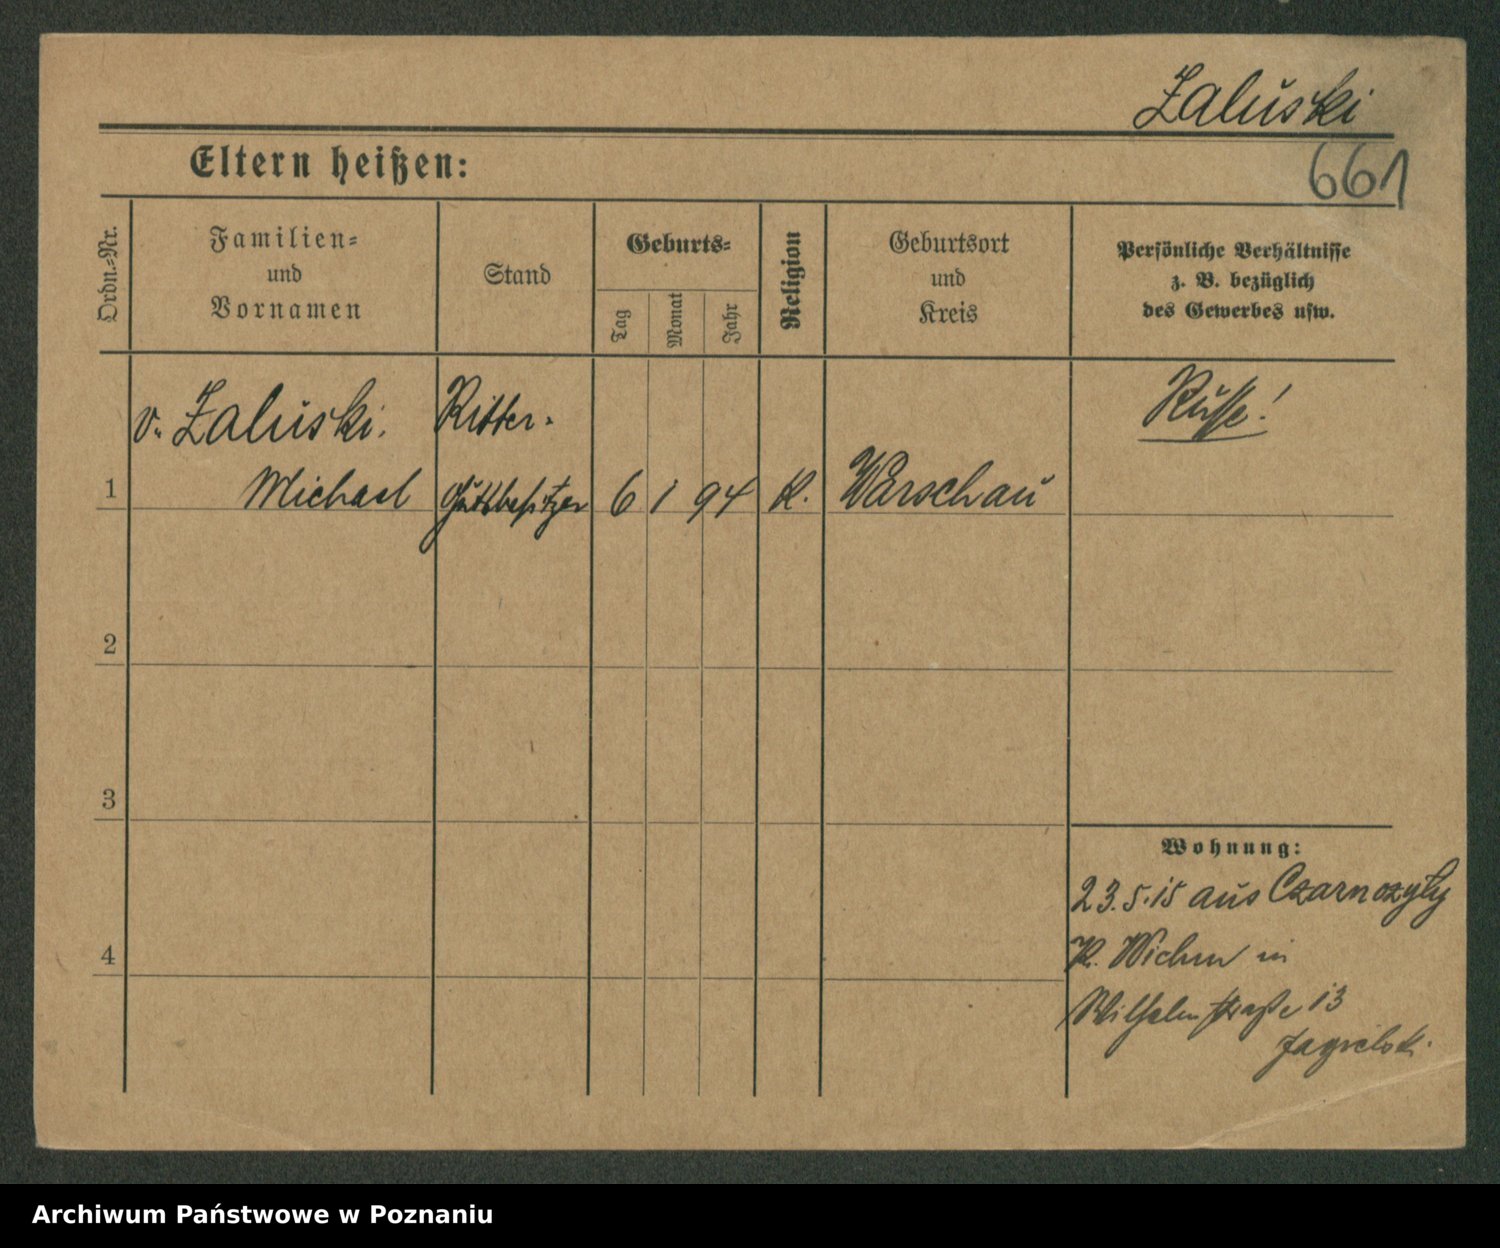 Zaluski
Eltern heißen:
661
Ordn.-Nr.
Familien-
und
Vornamen
Stand
Geburts-
Tag
Monat
Jahr
Religion
Geburtsort
und
Kreis
Persönliche Verhältnisse
z. B. bezüglich
des Gewerbes usw.
v. Zaluski.
Michael
Ritter-
gutsbesitzer
1
6
1
94
K.
Warschau
Russe!
2
3
4
Wohnung:
23.5.15 aus Czarnozyly
K. Wielun in
Wilhelmstraße 13
Jagielski
Archiwum Państwowe w Poznaniu